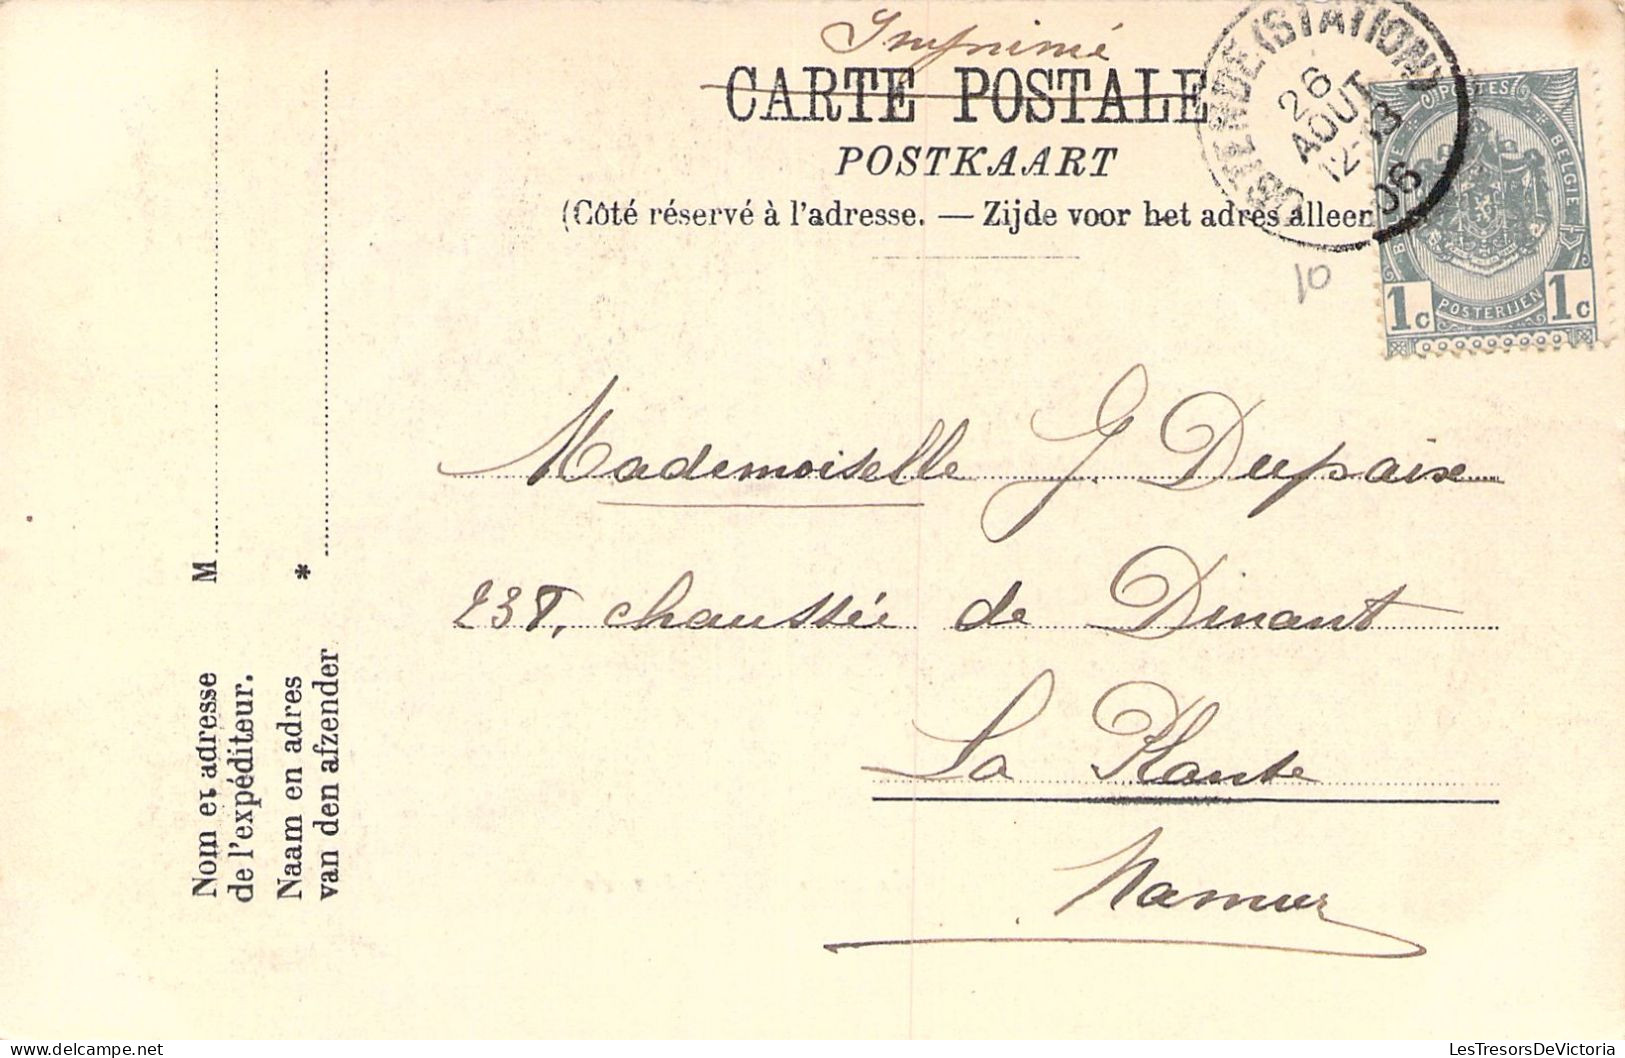 Imprimé
CARTE POSTALE
POSTKAART
(Côté réservé à l'adresse. — Zijde voor het adres alleen
OSTENDE (STATION)
26
AOUT
12-13
06
POSTES
BELGIE
1c
POSTERIJEN
1c
10
Mademoiselle J. Dupaix
chaussée de Dinant
La Plante
Namur
M
Nom et adresse
de l'expéditeur.
*
Naam en adres
van den afzender
LesTresorsDeVictoria